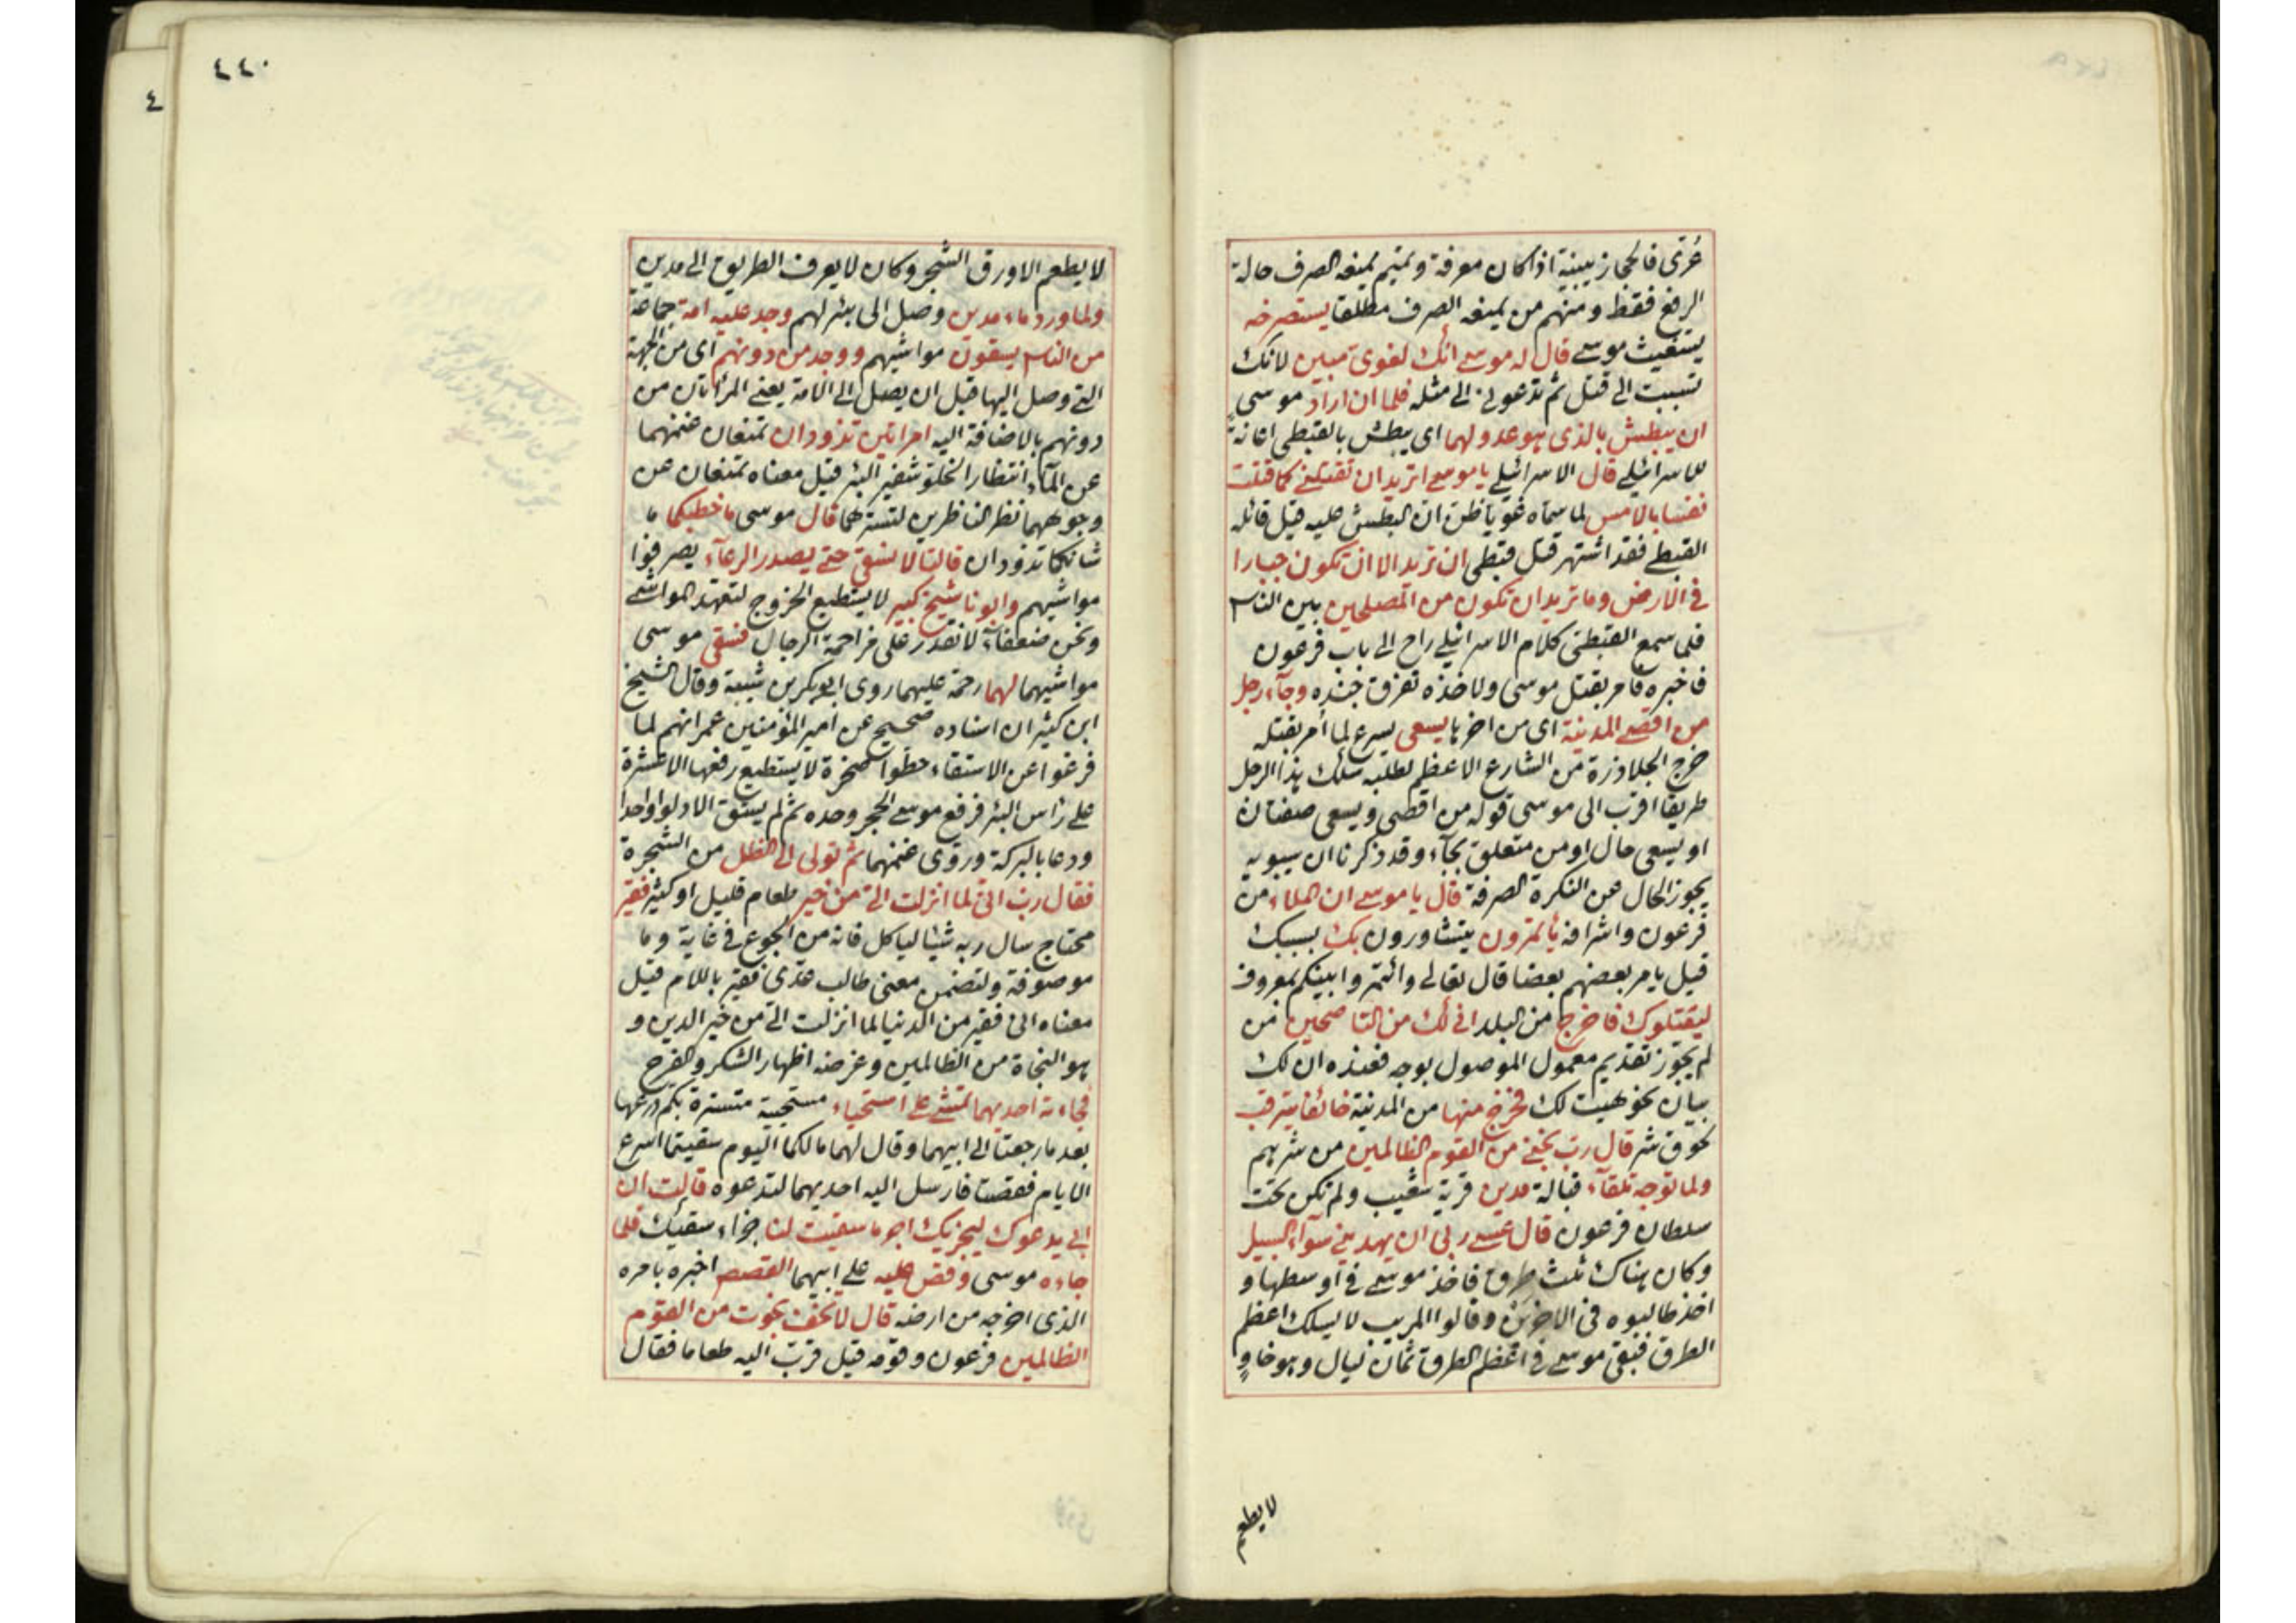 عُرّى فالحجاز يبنيه اذا كان معرفة وتميم يمنعه الصرف حالة
الرفع فقط ومنهم من يمنعه الصرف مطلقا يستصرخه
يستغيث موسى قال له موسى انك لغوى مبين لانك
تسببت الى قتل ثم تدعونى الى مثله فلما ان اراد موسى
ان يبطش بالذى هو عدو لهما اى يبطش بالقبطى اعانة
للاسرائيلى قال الاسرائيلى يا موسى اتريد ان تقتلنى كما قتلت
نفسا بالامس لما سماه غويا ظن ان البطش عليه قيل قائله
القبطى فقد اشتهر قتل قبطى ان تريد الا ان تكون جبارا
فى الارض وما تريد ان تكون من المصلحين بين الناس
فلما سمع القبطى كلام الاسرائيلى راح الى باب فرعون
فاخبره فامر بقتل موسى ولاخذه تفرق جنده وجآء رجل
من اقصى المدينة اى من اخرها يسعى يسرع لما أمر بقتله
خرج الجلاوزة من الشارع الاعظم لطلبه سلك هذا الرجل
طريقا اقرب الى موسى قوله من اقصى ويسعى صفتان
او يسعى حال او من متعلق بجآء وقد ذكرنا ان سيبويه
يجوز الحال عن النكرة الصرفة قال يا موسى ان الملاء من
فرعون واشرافه يأتمرون يتشاورون بك بسببك
قيل يامر بعضهم بعضا قال تعالى وائتمروا بينكم بمعروف
ليقتلوك فاخرج من البلد انى لك من الناصحين من
لم يجوّز تقديم معمول الموصول بوجه فعنده ان لك
بيان نحو هيت لك فخرج منها من المدينة خائفا يترقب
لحوق شر قال رب نجنى من القوم الظالمين من شرهم
ولما توجه تلقآء قبالة مدين قرية شعيب ولم تكن تحت
سلطان فرعون قال عسى ربى ان يهدينى سوآء السبيل
وكان هناك ثلث طرق فاخذ موسى فى اوسطها و
اخذ طالبوه فى الاخرين وقالوا المريب لا يسلك اعظم
الطرق فبقى موسى فى اعظم الطرق ثمان ليال وهو خاوٍ
لا يطعم
٤٤٠
٤
لا يطعم الا ورق الشجر وكان لا يعرف الطريق الى مدين
ولما ورد ماء مدين وصل الى بئر لهم وجد عليه امة جماعة
من الناس يسقون مواشيهم ووجد من دونهم اى من الجهة
التى وصل اليها قبل ان يصل الى الامة يعنى المرأتان من
دونهم بالاضافة اليه امراتين تذودان تمنعان غنمهما
عن المآء انتظارا لخلو شفير البئر قيل معناه تمنعان عن
وجوههما نظر الناظرين لتسترهما قال موسى ما خطبكما ما
شانكما تذودان قالتا لا نسقى حتى يصدر الرعآء يصرفوا
مواشيهم وابونا شيخ كبير لا يستطيع الخروج لتعهد المواشى
ونحن ضعفاء لا نقدر على مزاحمة الرجال فسقى موسى
مواشيهما لهما رحمة عليهما روى ابو بكر بن شيبة وقال الشيخ
ابن كثير ان اسناده صحيح عن امير المؤمنين عمر انهم لما
فرغوا عن الاستقاء حطوا صخرة لا يستطيع رفعها الا عشرة
على راس البئر فرفع موسى الحجر وحده ثم لم يستق الا دلوا واحدا
ودعا بالبركة وروى غنمهما ثم تولى الى الظل من الشجرة
فقال رب انى لما انزلت الىّ من خير طعام قليل او كثير فقير
محتاج سال ربه شيئا لياكل فانه من الجوع فى غاية وما
موصوفة ولتضمن معنى طالب عدى فقير باللام قيل
معناه انى فقير من الدنيا لما انزلت الى من خير الدين و
هو النجاة من الظالمين وغرضه اظهار الشكر والفرح
فجاءته احديهما تمشى على استحياء مستحيية متسترة بكم درعها
بعد ما رجعتا الى ابيهما وقال لهما ما لكما اليوم سقيتما اسرع
الايام فقصتا فارسل اليه احديهما لتدعوه قالت ان
ابى يدعوك ليجزيك اجر ما سقيت لنا جزاء سقيك فلما
جاءه موسى وقص عليه على ابيهما القصص اخبره بامره
الذى اخرجه من ارضه قال لا تخف نجوت من القوم
الظالمين فرعون وقومه قيل قرب اليه طعاما فقال